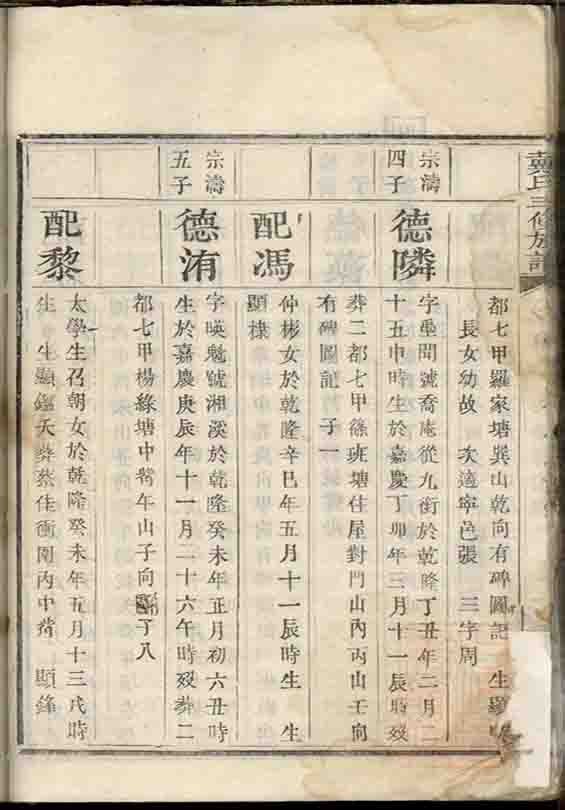 戴氏三修族譜
都七甲羅家塘巽山乾向有碑圖記 生顯
長女幼故 次適寧邑張 三字周
宗濤
四子
德隣
字 聞號喬庵從九銜於乾隆丁丑年二月二
十五申時生於嘉慶丁卯年三月十一辰時歿
葬二都七甲篠班塘住屋對門山內丙山壬向
有碑圖記 子一
配馮
仲彬女於乾隆辛巳年五月十一辰時生 生
顯棣
宗濤
五子
德洧
字暎魁號湘溪於乾隆癸未年正月初六丑時
生於嘉慶庚辰年十一月二十六午時歿葬二
都七甲楊綠塘中嘴午山子向 丁八
配黎
太學生召朝女於乾隆癸未年五月十三戌時
生 生顯鑑夭葬蔡佳衝圍內中嘴 顯鋒